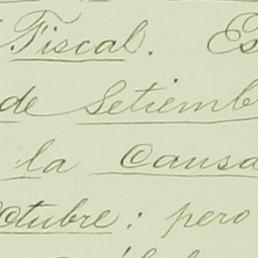 Fiscal. Es
de Setiemb
la Causa
Octubre: pero